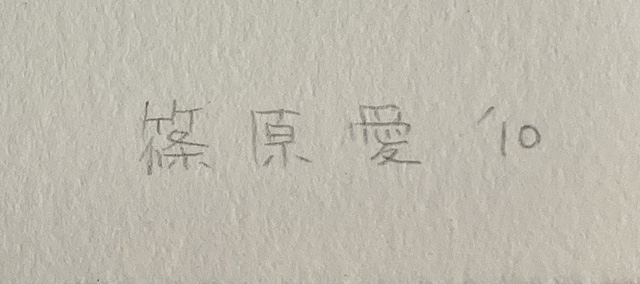 篠原愛 '10